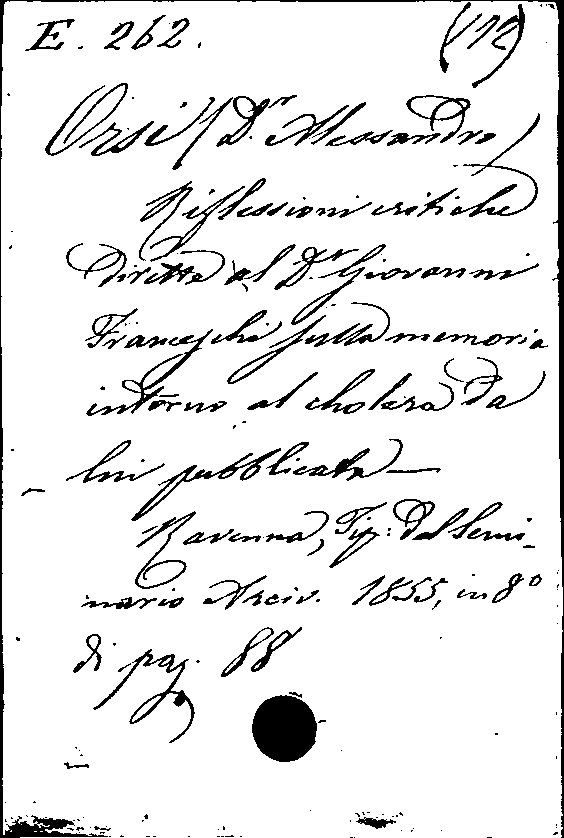 E. 262. (12)
Orsi (D.r Alessandro)
Riflessioni critiche
dirette al D.r Giovanni
Franceschi sulla memoria
intorno al cholera da
lui pubblicata —
Ravenna, Tip: del Semi-
nario Arciv. 1855, in 8º
di pag. 88